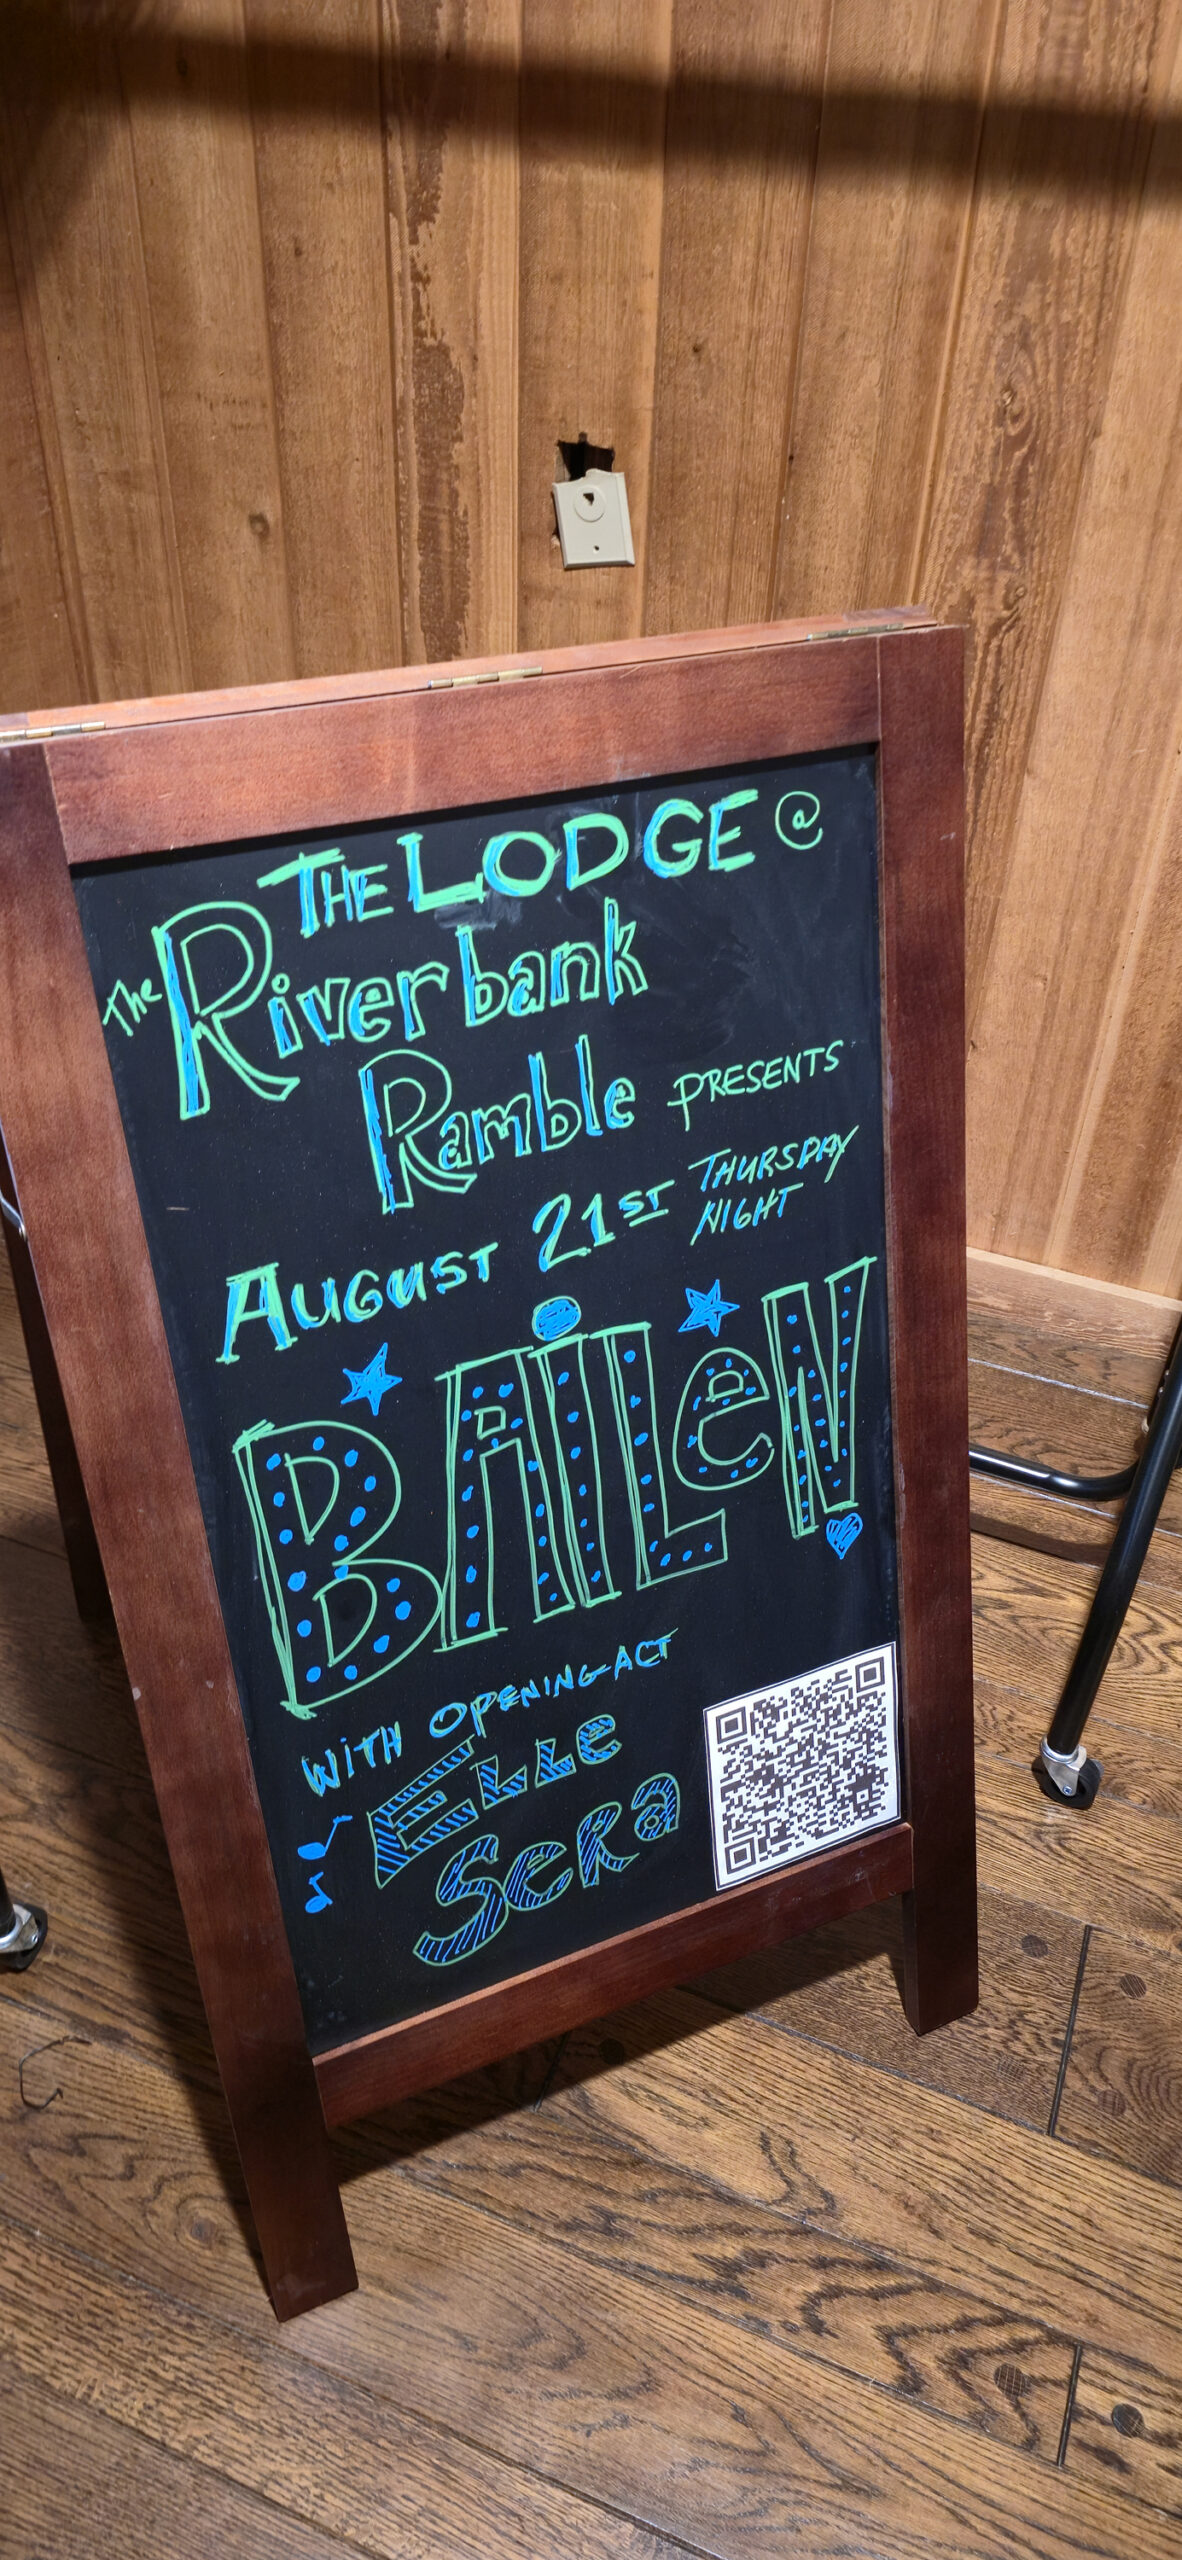 THE LODGE @
The Riverbank
Ramble PRESENTS
AUGUST 21ST THURSDAY
NIGHT
BAiLeN
WiTH OPENING-ACT
ELLe
SeRa